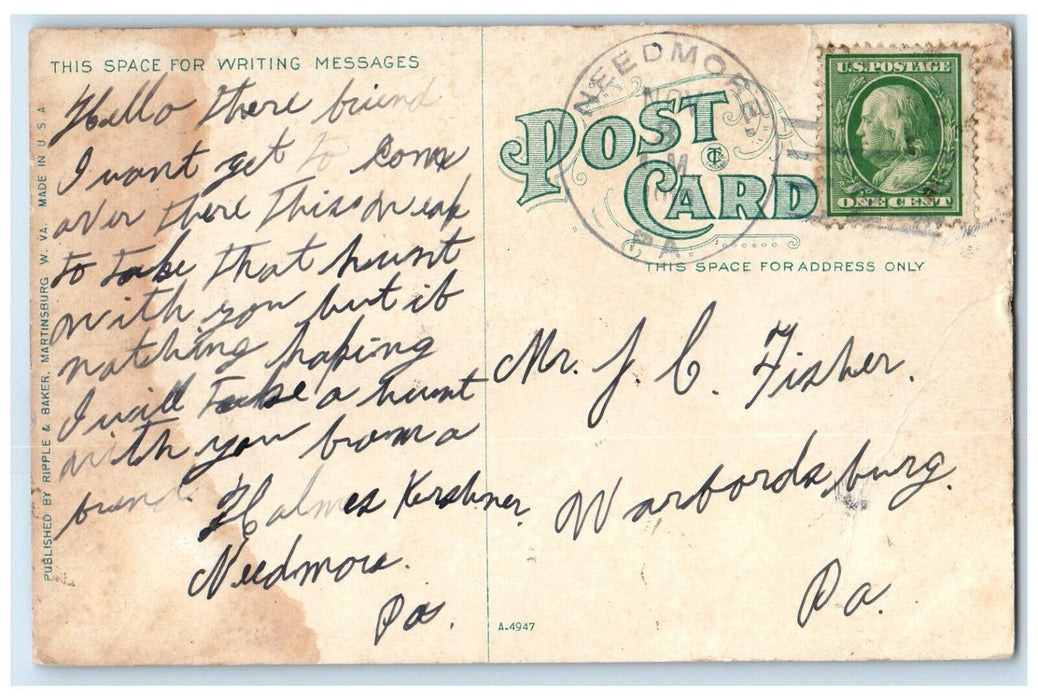 THIS SPACE FOR WRITING MESSAGES
Hello there friend
I want get to come
over there this weak
to take that hunt
with you but if
nothing haping
I will take a hunt
with you from a
friend.
Holmes Kershner.
Needmore.
Pa.
PUBLISHED BY RIPPLE & BAKER, MARTINSBURG W. VA. MADE IN U.S.A
NEEDMORE
NOV
M
PA.
POST CARD
U.S. POSTAGE
ONE CENT
THIS SPACE FOR ADDRESS ONLY
Mr. J. C. Fisher.
Warfordsburg.
Pa.
A-4947